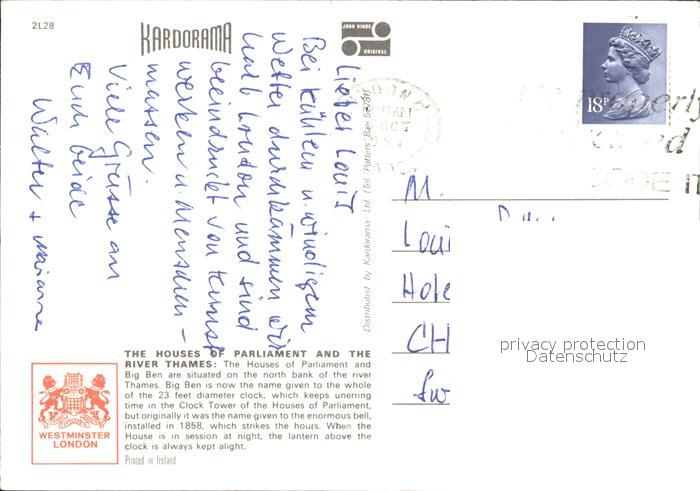 2L28
KARDORAMA
JOHN HINDE
ORIGINAL
18P
Lieber Louis
Bei kühlem u. windigem
Wetter durchkämmen wir
halb London und sind
beeindruckt von Kunst
werken u. Menschen-
massen.
Viele Grüsse an
Euch beide
Walter + Marianne
Distributed by Kardorama Ltd. (Tel. Potters Bar
M.
Loui
Hote
CH
privacy protection
Datenschutz
THE HOUSES OF PARLIAMENT AND THE
RIVER THAMES: The Houses of Parliament and
Big Ben are situated on the north bank of the river
Thames. Big Ben is now the name given to the whole
of the 23 feet diameter clock, which keeps unerring
time in the Clock Tower of the Houses of Parliament,
but originally it was the name given to the enormous bell,
installed in 1858, which strikes the hours. When the
House is in session at night, the lantern above the
clock is always kept alight.
Printed in Ireland
WESTMINSTER
LONDON